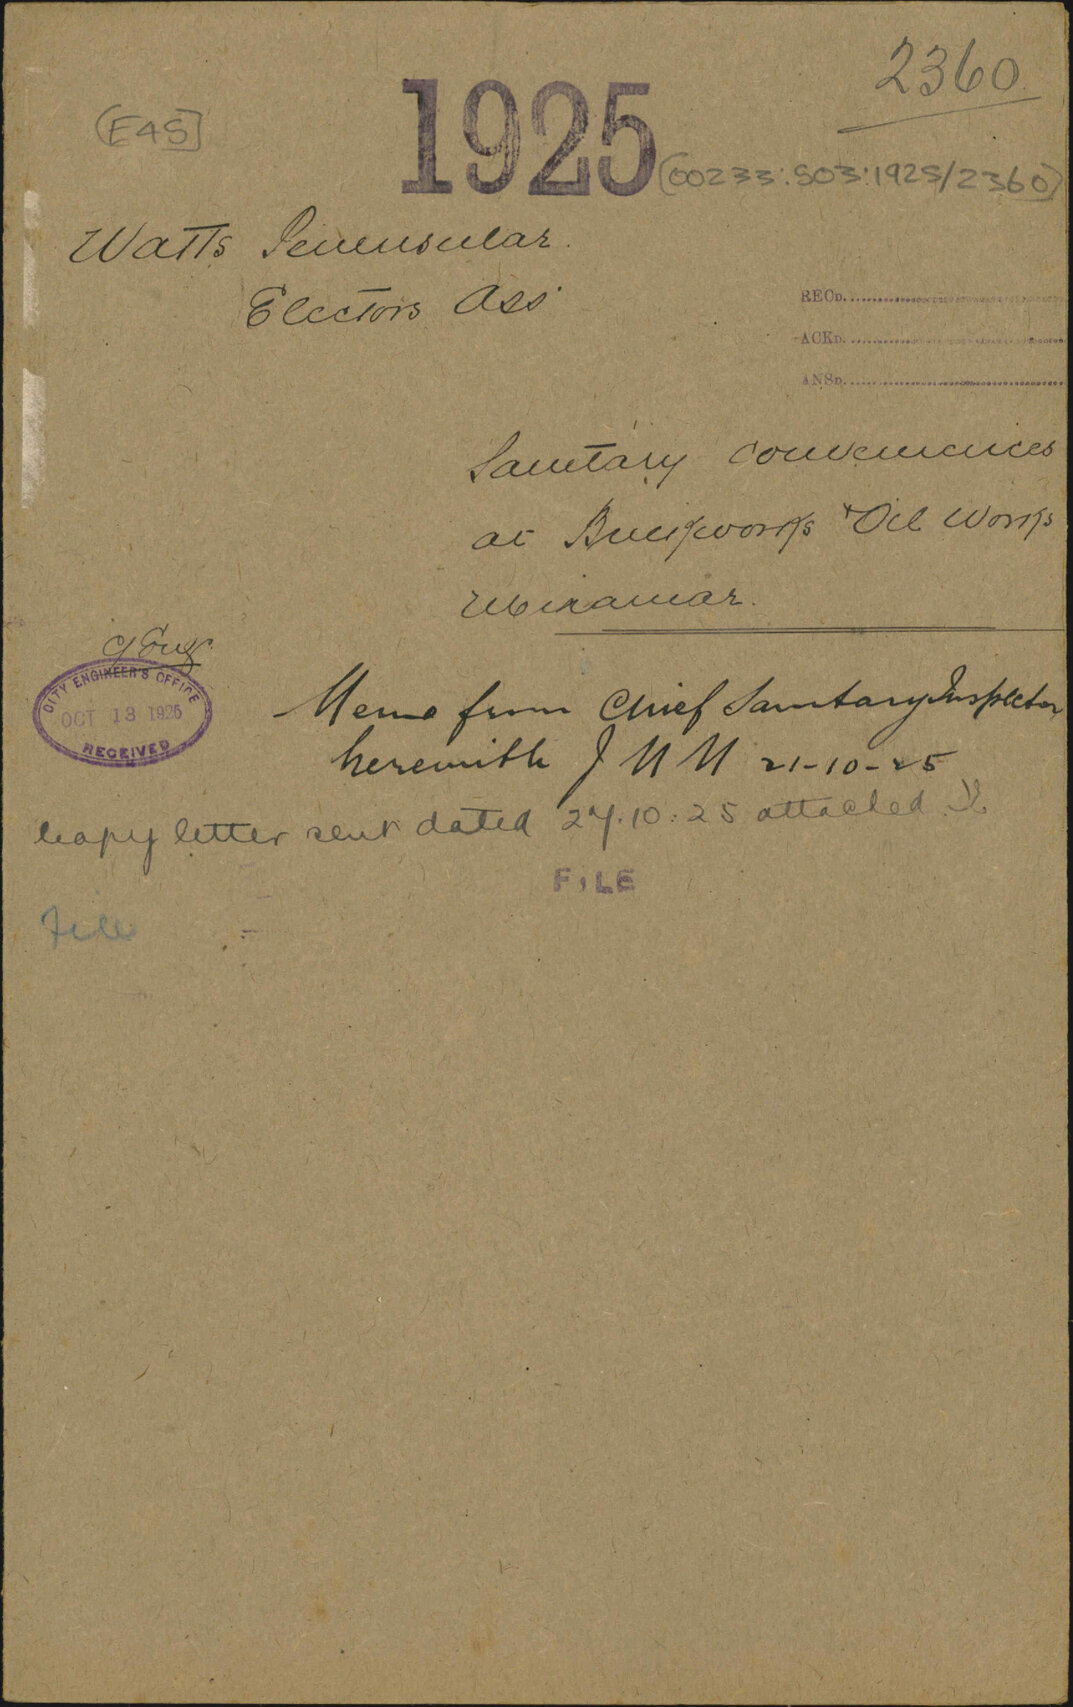 2360
1925
(E45]
(00233:503:1925/2360)
Watts Peninsular
Electors Ass
RECD.
ACKD.
ANSD.
Sanitary conveniences
at Brickworks & Oil Works
Miramar.
C/Eng
CITY ENGINEER'S OFFICE
OCT 13 1925
RECEIVED
Memo from Chief Sanitary Inspector
herewith J M M 21-10-25
Copy letter sent dated 27.10.25 attached
FILE
File